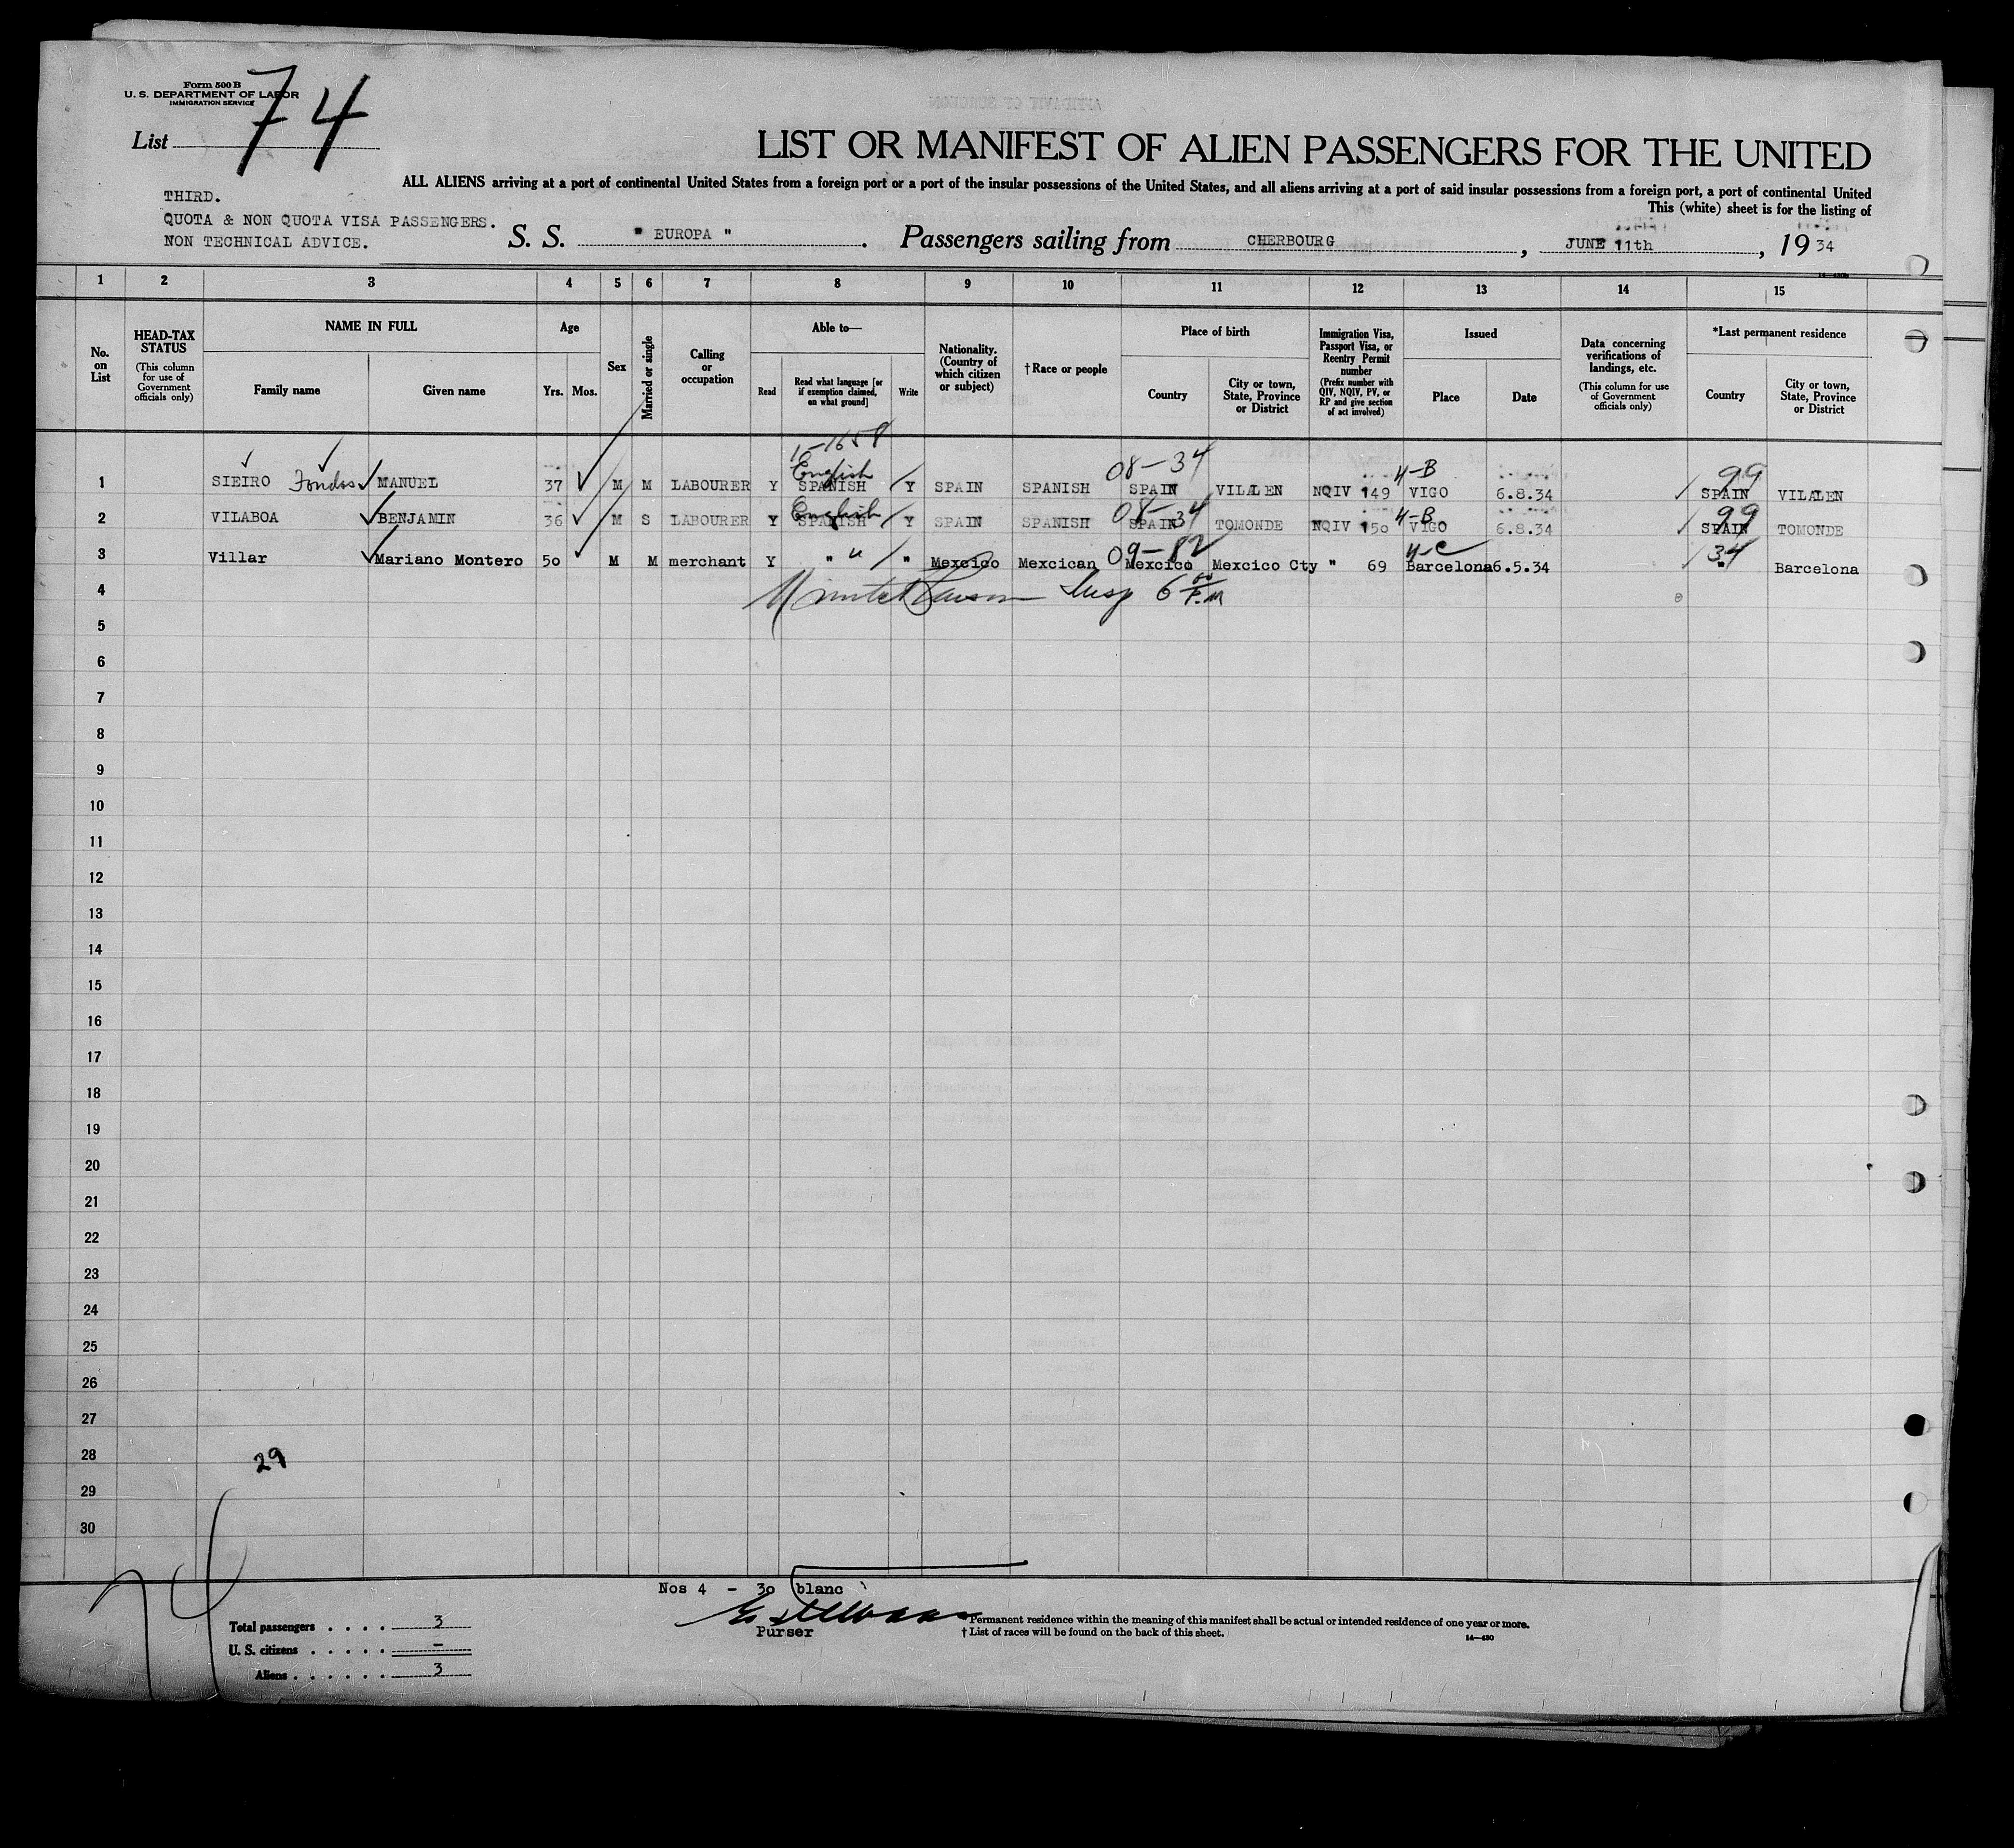 Form 500 B
U. S. DEPARTMENT OF LABOR
IMMIGRATION SERVICE
List 74
LIST OR MANIFEST OF ALIEN PASSENGERS FOR THE UNITED
ALL ALIENS arriving at a port of continental United States from a foreign port or a port of the insular possessions of the United States, and all aliens arriving at a port of said insular possessions from a foreign port, a port of continental United
This (white) sheet is for the listing of
THIRD.
QUOTA & NON QUOTA VISA PASSENGERS.
NON TECHNICAL ADVICE.
S. S. " EUROPA ". Passengers sailing from CHERBOURG, JUNE 11th, 1934
1 2 3 4 5 6 7 8 9 10 11 12 13 14 15
No. on List
HEAD-TAX STATUS (This column for use of Government officials only)
NAME IN FULL
Family name Given name
Age
Yrs. Mos.
Sex
Married or single
Calling or occupation
Able to—
Read
Read what language [or if exemption claimed, on what ground]
Write
Nationality. (Country of which citizen or subject)
†Race or people
Place of birth
Country
City or town, State, Province or District
Immigration Visa, Passport Visa, or Reentry Permit number (Prefix number with QIV, NQIV, PV, or RP and give section of act involved)
Issued
Place Date
Data concerning verifications of landings, etc. (This column for use of Government officials only)
*Last permanent residence
Country
City or town, State, Province or District
1-1658
English 08-34 4-B 99
1 SIEIRO MANUEL 37 M M LABOURER Y SPANISH Y SPAIN SPANISH SPAIN VILALEN NQIV 149 VIGO 6.8.34 SPAIN VILALEN
English 08-34 4-B 99
2 VILABOA BENJAMIN 36 M S LABOURER Y SPANISH Y SPAIN SPANISH SPAIN TOMONDE NQIV 150 VIGO 6.8.34 SPAIN TOMONDE
09-82 4-C 34
3 Villar Mariano Montero 50 M M merchant Y " " " Mexcico Mexcican Mexcico Mexcico Cty " 69 Barcelona 6.5.34 " Barcelona
4 Insp 6 00 P.M
5
6
7
8
9
10
11
12
13
14
15
16
17
18
19
20
21
22
23
24
25
26
27
28 29
29
30
74
Nos 4 - 30 blanc
Purser
Total passengers . . . . 3
U. S. citizens . . . . . —
Aliens . . . . . . 3
*Permanent residence within the meaning of this manifest shall be actual or intended residence of one year or more.
† List of races will be found on the back of this sheet.
14—430